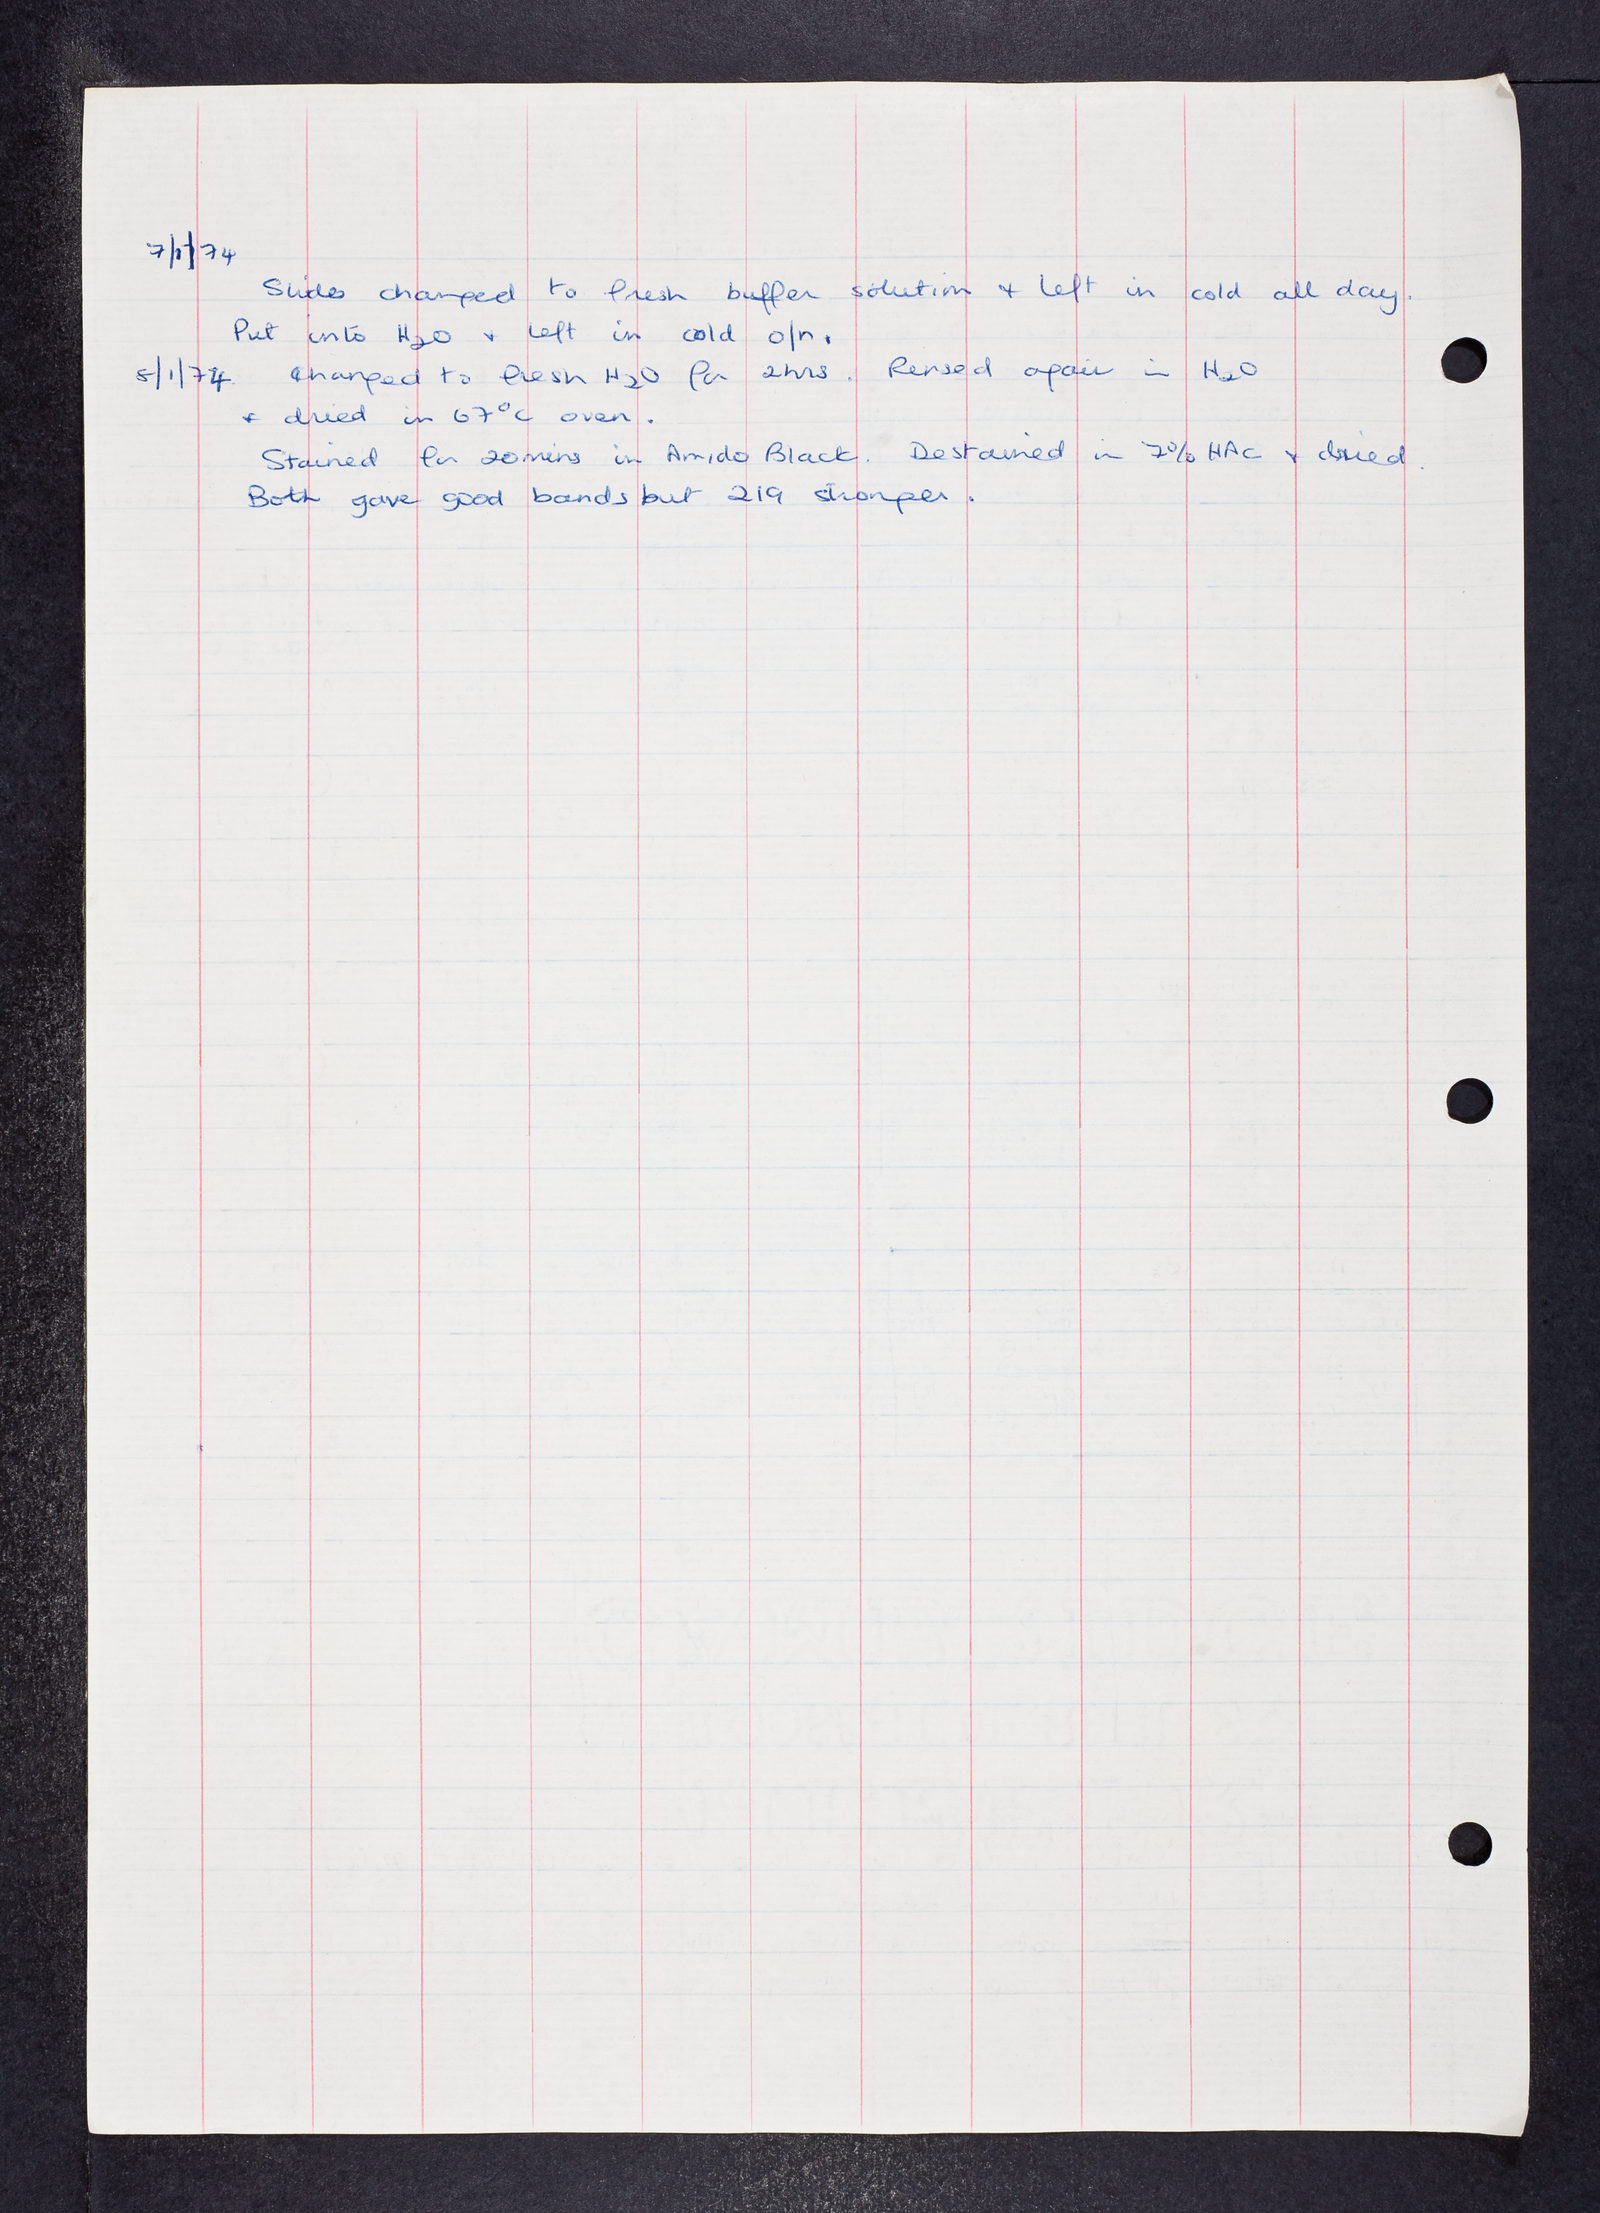 7/1/74
Slides changed to fresh buffer solution & left in cold all day.
Put into H2O & left in cold o/n.
8/1/74 Changed to fresh H2O for 2hrs. Rensed again in H2O
& dried in 67°C oven.
Stained for 20mins in Amido Black. Destained in 7% HAc & dried.
Both gave good bands but 219 stronger.